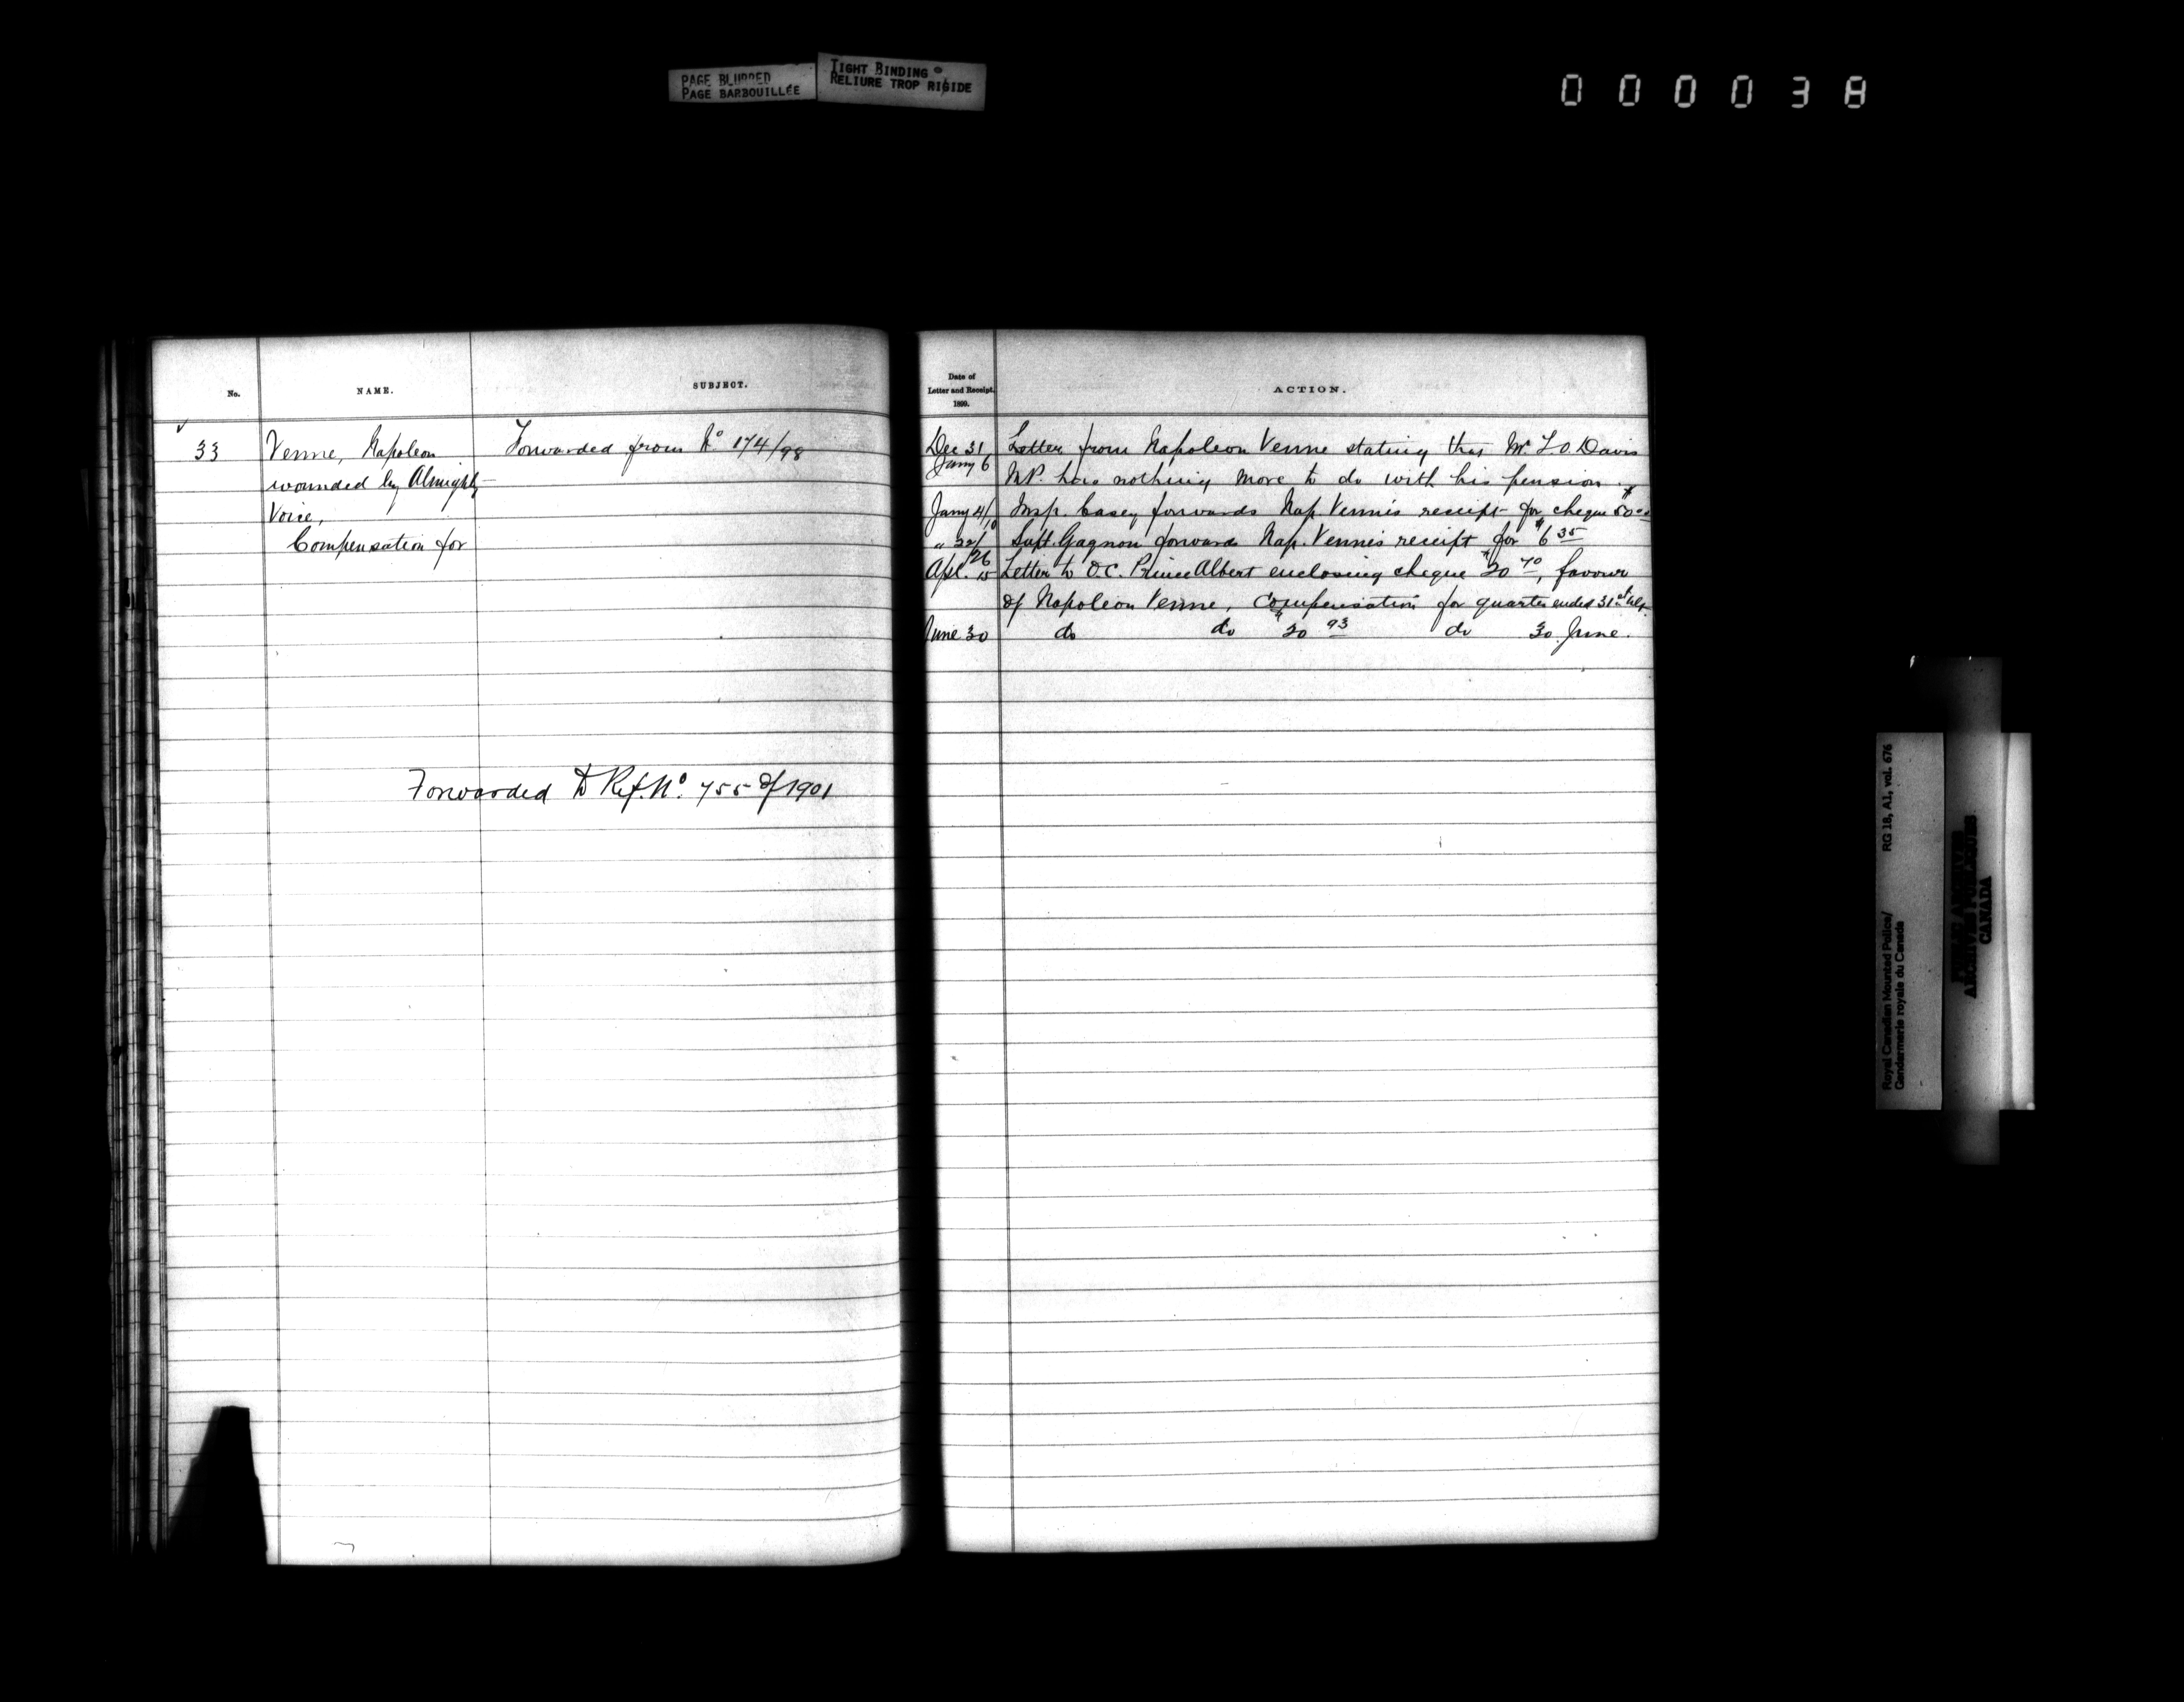 PAGE BLURRED
PAGE BARBOUILLÉE
TIGHT BINDING
RELIURE TROP RIGIDE
000038
No.
NAME.
SUBJECT.
33
Venne, Napoleon
wounded by Almighty
Voice,
Compensation for
Forwarded from No. 174/98
Forwarded to Ref. No. 755 of 1901
Date of
Letter and Receipt.
1899.
ACTION.
Dec 31 Letter from Napoleon Venne stating that Mr. T.O. Davis
Jany 6 M.P. has nothing more to do with his pension.
Jany 4/10 Insp. Casey forwards Nap. Venne's receipt for cheque $50
" 22/26 Supt. Gagnon forwards Nap. Venne's receipt for $6 35
Apl. 15 Letter to O.C. Prince Albert enclosing cheque $20 70, favour
of Napoleon Venne, Compensation for quarter ended 31st ult.
June 30 do do $20 93 do 30 June.
RG 18, A1, vol. 676
Royal Canadian Mounted Police/
Gendarmerie royale du Canada
CANADA